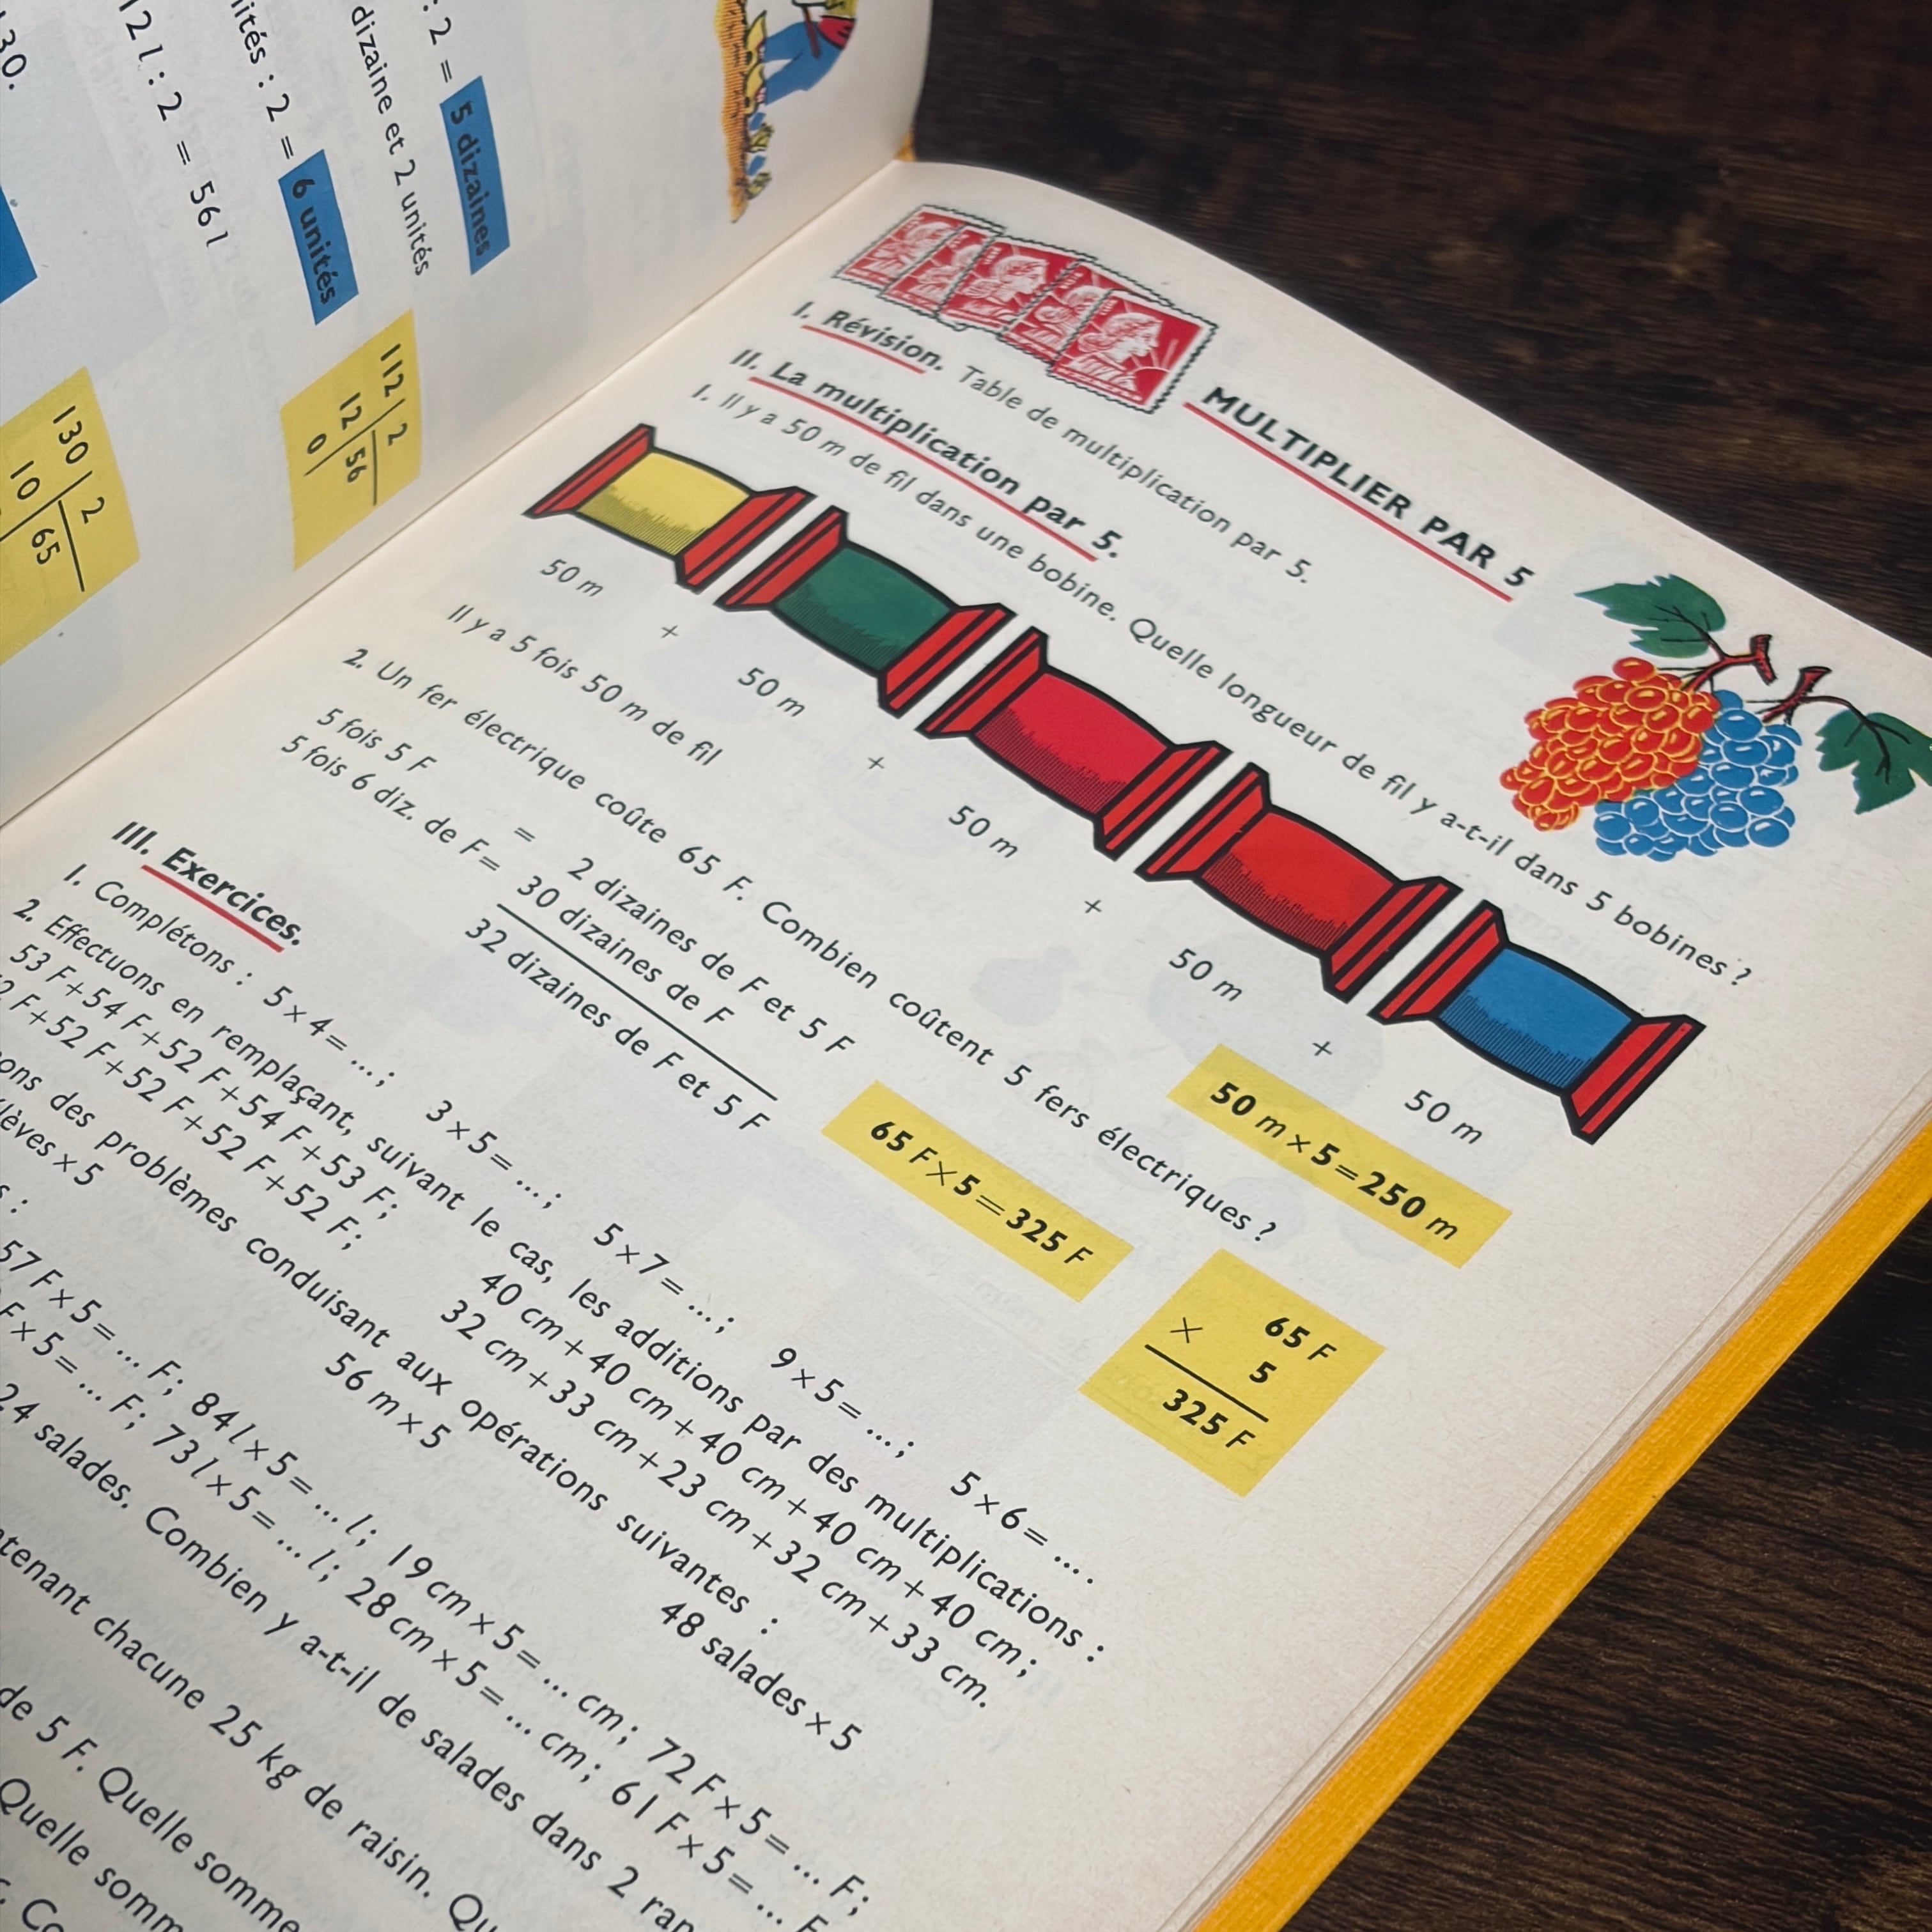 30.
121 : 2 = 56 l
ités : 2 = 6 unités
dizaine et 2 unités
: 2 = 5 dizaines
112 2
12 56
0
130 2
10 65
MULTIPLIER PAR 5
I. Révision. Table de multiplication par 5.
II. La multiplication par 5.
1. Il y a 50 m de fil dans une bobine. Quelle longueur de fil y a-t-il dans 5 bobines ?
50 m + 50 m + 50 m + 50 m + 50 m
Il y a 5 fois 50 m de fil
50 m × 5 = 250 m
2. Un fer électrique coûte 65 F. Combien coûtent 5 fers électriques ?
5 fois 5 F = 2 dizaines de F et 5 F
5 fois 6 diz. de F = 30 dizaines de F
32 dizaines de F et 5 F
65 F × 5 = 325 F
65 F
× 5
325 F
III. Exercices.
1. Complétons : 5 × 4 = ...; 3 × 5 = ...; 5 × 7 = ...; 9 × 5 = ...; 5 × 6 = ....
2. Effectuons en remplaçant, suivant le cas, les additions par des multiplications :
53 F + 54 F + 52 F + 54 F + 53 F; 40 cm + 40 cm + 40 cm + 40 cm + 40 cm;
2 F + 52 F + 52 F + 52 F + 52 F; 32 cm + 33 cm + 23 cm + 32 cm + 33 cm.
ons des problèmes conduisant aux opérations suivantes :
lèves × 5 56 m × 5 48 salades × 5
s :
57 F × 5 = ... F; 84 l × 5 = ... l; 19 cm × 5 = ... cm; 72 F × 5 = ... F;
F × 5 = ... F; 73 l × 5 = ... l; 28 cm × 5 = ... cm; 61 F × 5 = ... F
24 salades. Combien y a-t-il de salades dans 2 ran
tenant chacune 25 kg de raisin. Qu
de 5 F. Quelle somme
Quelle somm
Co